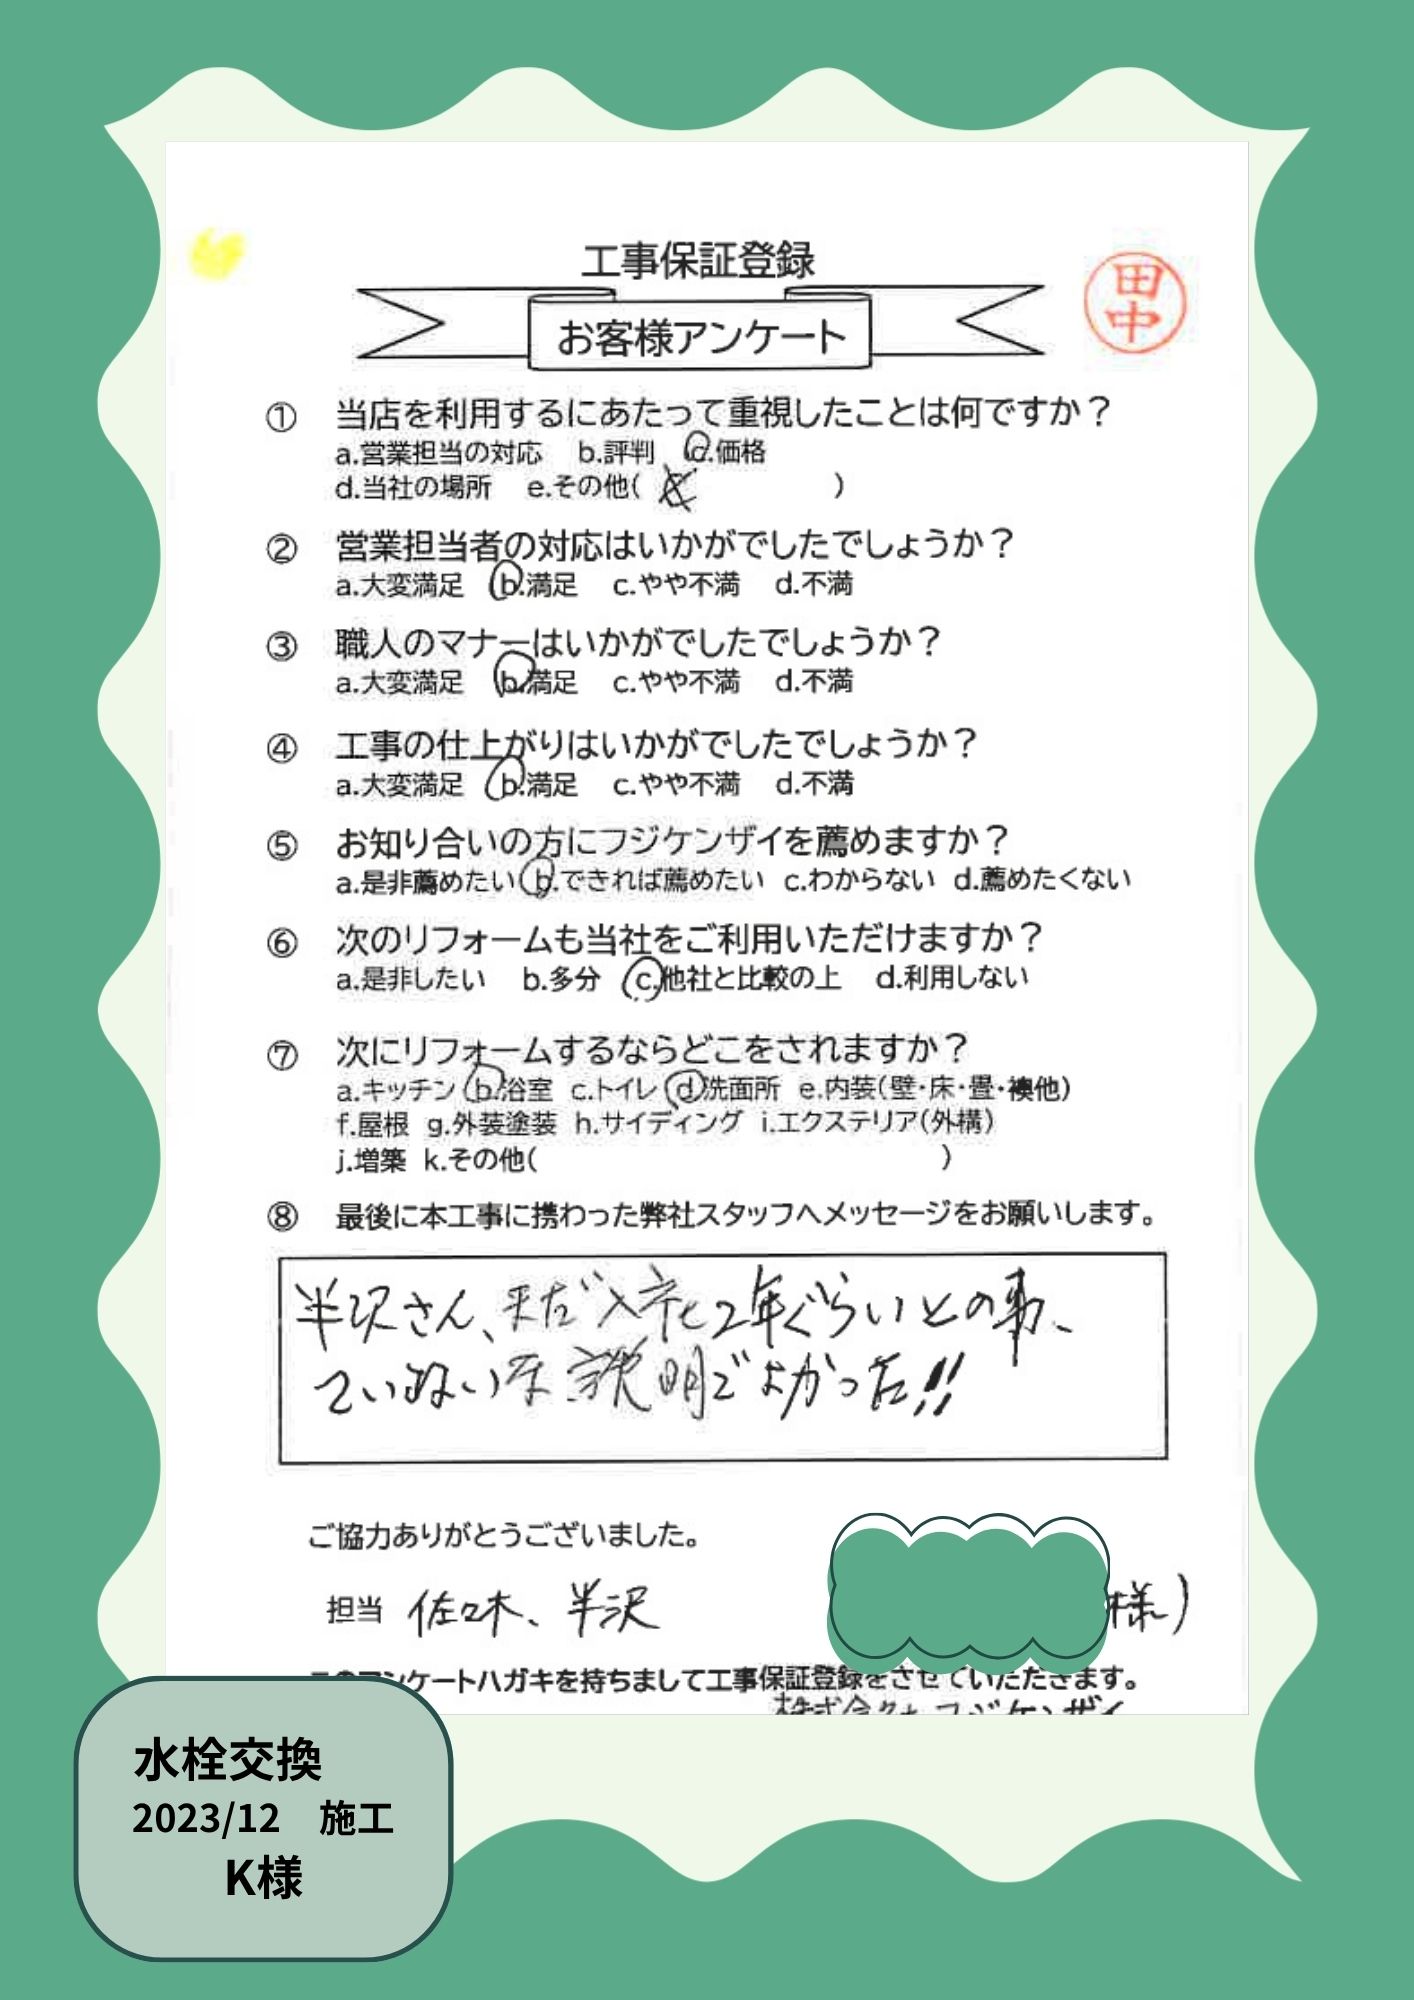 工事保証登録
お客様アンケート
田中
① 当店を利用するにあたって重視したことは何ですか？
a.営業担当の対応 b.評判 c.価格
d.当社の場所 e.その他( )
② 営業担当者の対応はいかがでしたでしょうか？
a.大変満足 b.満足 c.やや不満 d.不満
③ 職人のマナーはいかがでしたでしょうか？
a.大変満足 b.満足 c.やや不満 d.不満
④ 工事の仕上がりはいかがでしたでしょうか？
a.大変満足 b.満足 c.やや不満 d.不満
⑤ お知り合いの方にフジケンザイを薦めますか？
a.是非薦めたい b.できれば薦めたい c.わからない d.薦めたくない
⑥ 次のリフォームも当社をご利用いただけますか？
a.是非したい b.多分 c.他社と比較の上 d.利用しない
⑦ 次にリフォームするならどこをされますか？
a.キッチン b.浴室 c.トイレ d.洗面所 e.内装(壁・床・畳・襖他)
f.屋根 g.外装塗装 h.サイディング i.エクステリア(外構)
j.増築 k.その他( )
⑧ 最後に本工事に携わった弊社スタッフへメッセージをお願いします。
半沢さん、まだ入社2年ぐらいとの事、
ていねいな説明でよかった!!
ご協力ありがとうございました。
担当 佐々木、半沢 様)
このアンケートハガキを持ちまして工事保証登録をさせていただきます。
株式会社フジケンザイ
水栓交換
2023/12 施工
K様